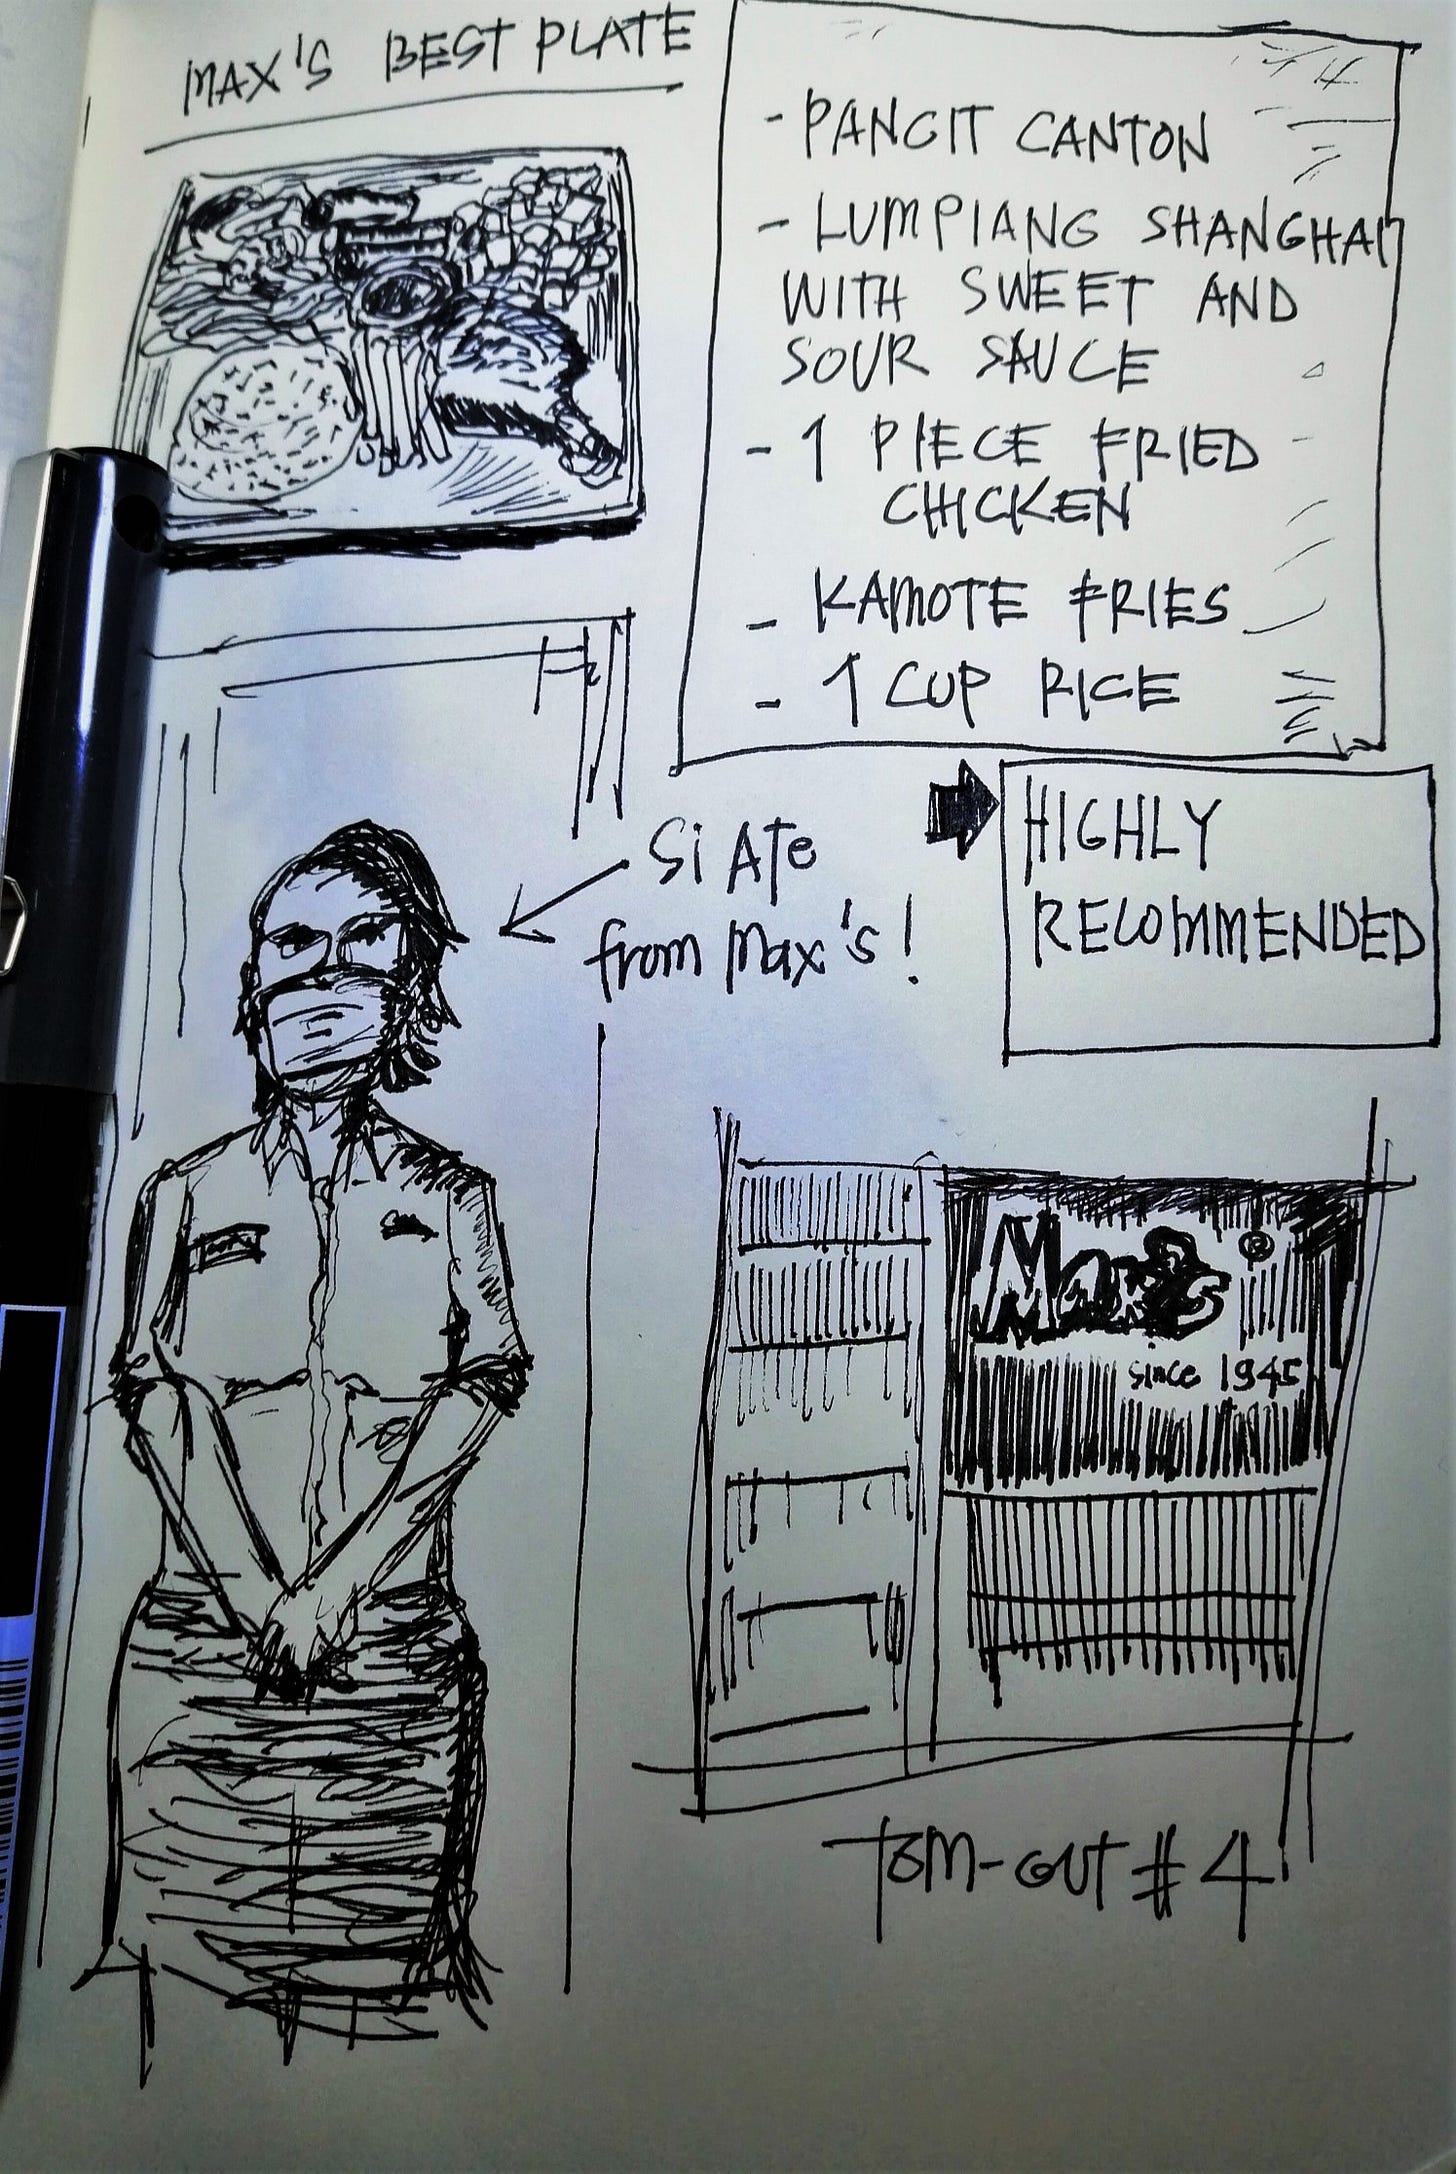 MAX'S BEST PLATE
- PANCIT CANTON
- LUMPIANG SHANGHAI
WITH SWEET AND
SOUR SAUCE
- 1 PIECE FRIED
CHICKEN
- KAMOTE FRIES
- 1 CUP RICE
HIGHLY
RECOMMENDED
Si ATe
from Max's!
Max's ®
since 1945
TOM-OUT # 4